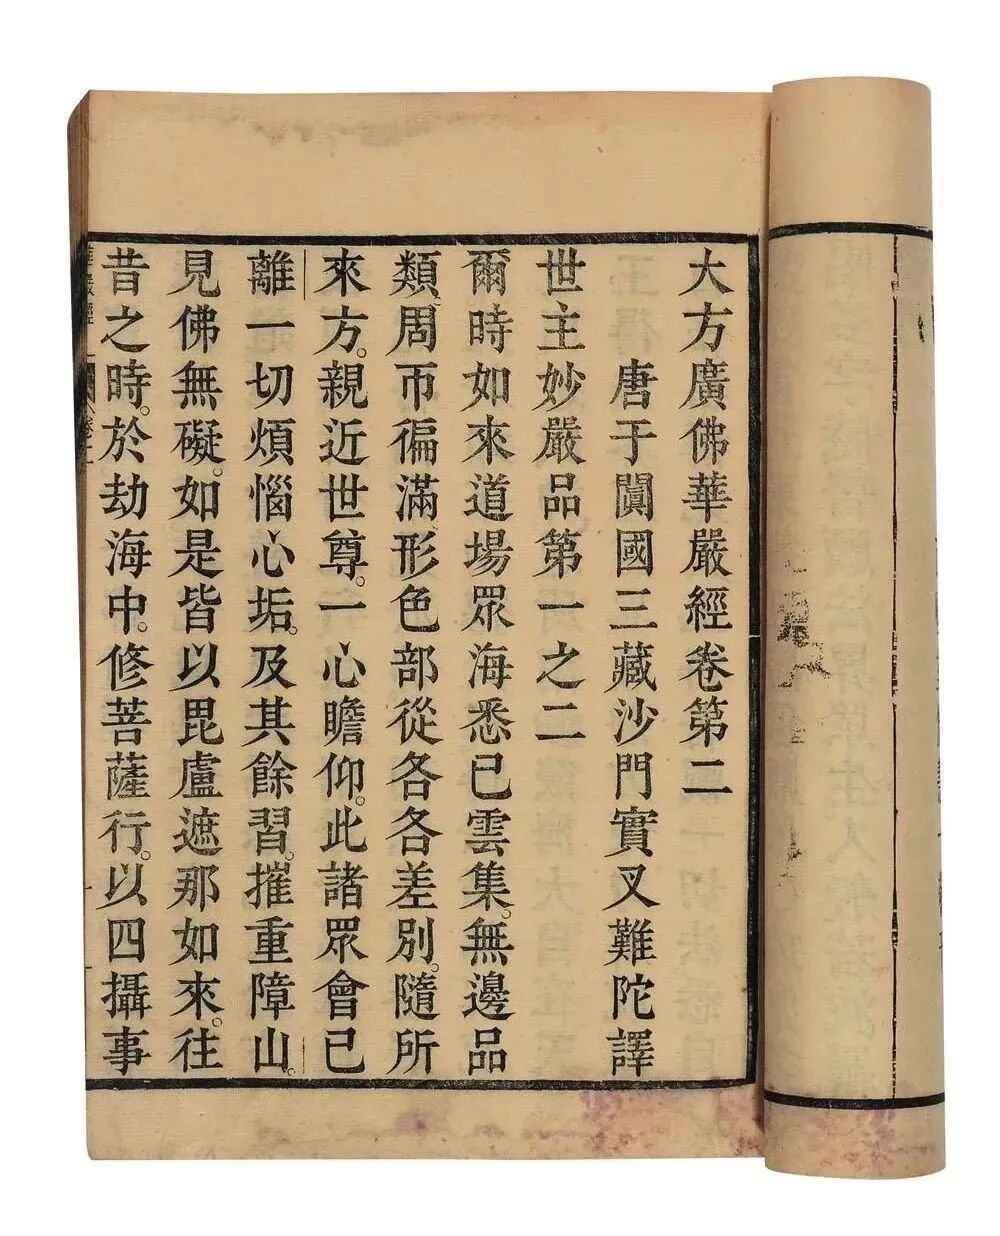 大方廣佛華嚴經卷第二
唐于闐國三藏沙門實叉難陀譯
世主妙嚴品第一之二
爾時如來道場眾海悉已雲集。無邊品
類周帀徧滿形色部從各各差別。隨所
來方。親近世尊。一心瞻仰。此諸眾會已
離一切煩惱心垢。及其餘習。摧重障山。
見佛無礙。如是皆以毘盧遮那如來。往
昔之時。於劫海中。修菩薩行。以四攝事